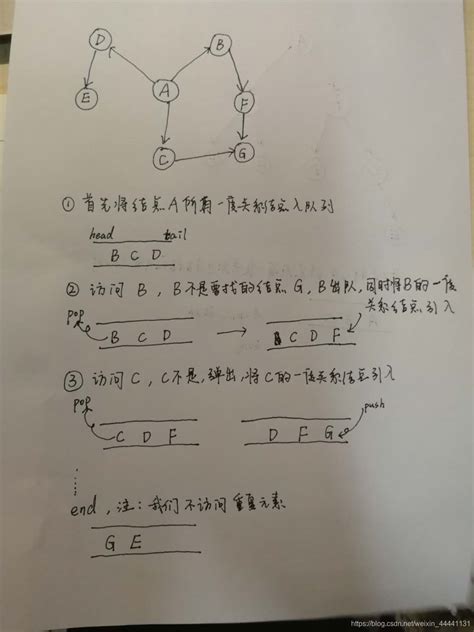 D
B
A
E
F
C
G
① 首先将结点A所有一度关系结点入队列
head tail
B C D
② 访问 B, B不是要找的结点 G, B出队, 同时将B的一度
关系结点引入
pop
B C D → C D F
③ 访问C, C不是, 弹出, 将C的一度关系结点引入
pop push
C D F D F G
......
end, 注: 我们不访问重复元素
G E
https://blog.csdn.net/weixin_44441131